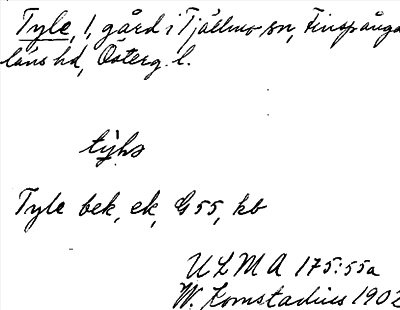 Tyle, 1, gård i Tjällmo sn, Finspånga
läns hd, Österg. l.
Tyle bek, ek, G 55, kb
ULMA 175:55a
W. Komstadius 1902